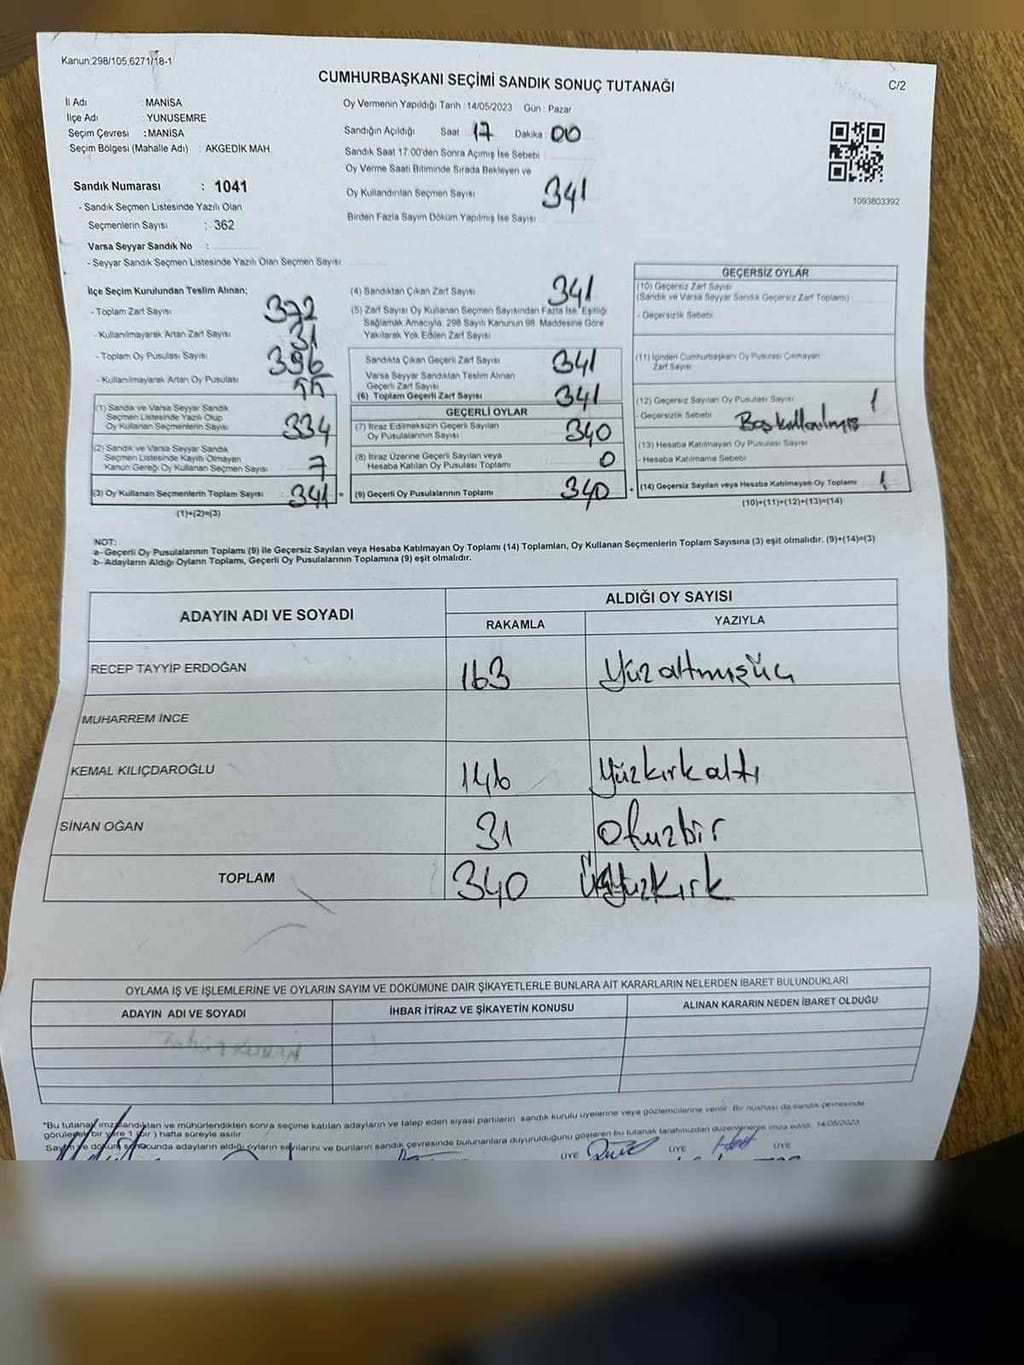 Kanun:298/105,6271/18-1
CUMHURBAŞKANI SEÇİMİ SANDIK SONUÇ TUTANAĞI
C/2
İl Adı : MANİSA
İlçe Adı : YUNUSEMRE
Seçim Çevresi : MANİSA
Seçim Bölgesi (Mahalle Adı) : AKGEDİK MAH.
Sandık Numarası : 1041
- Sandık Seçmen Listesinde Yazılı Olan
Seçmenlerin Sayısı : 362
Varsa Seyyar Sandık No :
- Seyyar Sandık Seçmen Listesinde Yazılı Olan Seçmen Sayısı
Oy Vermenin Yapıldığı Tarih : 14/05/2023 Gün : Pazar
Sandığın Açıldığı Saat : 17 Dakika : 00
Sandık Saat 17:00'den Sonra Açımış İse Sebebi :
Oy Verme Saati Bitiminde Sırada Bekleyen ve
Oy Kullandırılan Seçmen Sayısı 341
Birden Fazla Sayım Döküm Yapılmış İse Sayısı :
1093803392
İlçe Seçim Kurulundan Teslim Alınan;
- Toplam Zarf Sayısı 372
- Kullanılmayarak Artan Zarf Sayısı 31
- Toplam Oy Pusulası Sayısı 396
- Kullanılmayarak Artan Oy Pusulası 55
(1) Sandık ve Varsa Seyyar Sandık
Seçmen Listesinde Yazılı Olup
Oy Kullanan Seçmenlerin Sayısı 334
(2) Sandık ve Varsa Seyyar Sandık
Seçmen Listesinde Kayıtlı Olmayan
Kanun Gereği Oy Kullanan Seçmen Sayısı 7
(3) Oy Kullanan Seçmenlerin Toplam Sayısı 341 =
(1)+(2)=(3)
(4) Sandıktan Çıkan Zarf Sayısı 341
(5) Zarf Sayısı Oy Kullanan Seçmen Sayısından Fazla İse, Eşitliği
Sağlamak Amacıyla, 298 Sayılı Kanunun 98. Maddesine Göre
Yakılarak Yok Edilen Zarf Sayısı
Sandıkta Çıkan Geçerli Zarf Sayısı 341
Varsa Seyyar Sandıktan Teslim Alınan
Geçerli Zarf Sayısı
(6) Toplam Geçerli Zarf Sayısı 341
GEÇERLİ OYLAR
(7) İtiraz Edilmeksizin Geçerli Sayılan
Oy Pusulalarının Sayısı 340
(8) İtiraz Üzerine Geçerli Sayılan veya
Hesaba Katılan Oy Pusulası Toplamı 0
(9) Geçerli Oy Pusulalarının Toplamı 340 +
GEÇERSİZ OYLAR
(10) Geçersiz Zarf Sayısı
(Sandık ve Varsa Seyyar Sandık Geçersiz Zarf Toplamı)
- Geçersizlik Sebebi
(11) İçinden Cumhurbaşkanı Oy Pusulası Çıkmayan
Zarf Sayısı
(12) Geçersiz Sayılan Oy Pusulası Sayısı 1
- Geçersizlik Sebebi Boş kullanılmış
(13) Hesaba Katılmayan Oy Pusulası Sayısı
- Hesaba Katılmama Sebebi
(14) Geçersiz Sayılan veya Hesaba Katılmayan Oy Toplamı 1
(10)+(11)+(12)+(13)=(14)
NOT:
a- Geçerli Oy Pusulalarının Toplamı (9) ile Geçersiz Sayılan veya Hesaba Katılmayan Oy Toplamı (14) Toplamları, Oy Kullanan Seçmenlerin Toplam Sayısına (3) eşit olmalıdır. (9)+(14)=(3)
b- Adayların Aldığı Oyların Toplamı, Geçerli Oy Pusulalarının Toplamına (9) eşit olmalıdır.
ADAYIN ADI VE SOYADI
ALDIĞI OY SAYISI
RAKAMLA YAZIYLA
RECEP TAYYİP ERDOĞAN 163 Yüzaltmışüç
MUHARREM İNCE
KEMAL KILIÇDAROĞLU 146 Yüzkırkaltı
SİNAN OĞAN 31 Otuzbir
TOPLAM 340 Üçyüzkırk
OYLAMA İŞ VE İŞLEMLERİNE VE OYLARIN SAYIM VE DÖKÜMÜNE DAİR ŞİKAYETLERLE BUNLARA AİT KARARLARIN NELERDEN İBARET BULUNDUKLARI
ADAYIN ADI VE SOYADI İHBAR İTİRAZ VE ŞİKAYETİN KONUSU ALINAN KARARIN NEDEN İBARET OLDUĞU
*Bu tutanak imzalandıktan ve mühürlendikten sonra seçime katılan adayların ve talep eden siyasi partilerin sandık kurulu üyelerine veya gözlemcilerine verilir. Bir nüshası da sandık çevresinde
görülecek bir yere 1 (bir) hafta süreyle asılır.
Sayım ve döküm sonucunda adayların aldığı oyların sayılarını ve bunların sandık çevresinde bulunanlara duyurulduğunu gösteren bu tutanak tarafımızdan düzenlenerek imza edildi. 14/05/2023
ÜYE ÜYE ÜYE